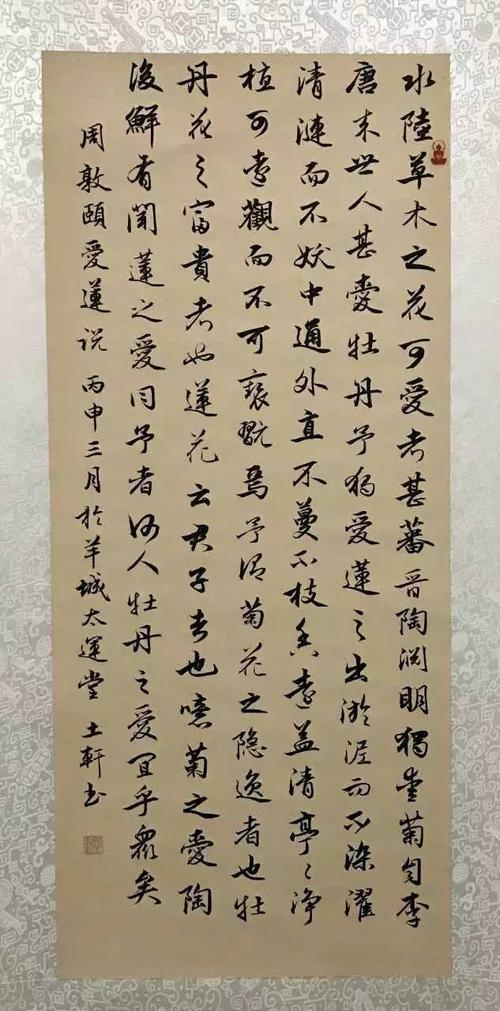 水陸草木之花可愛者甚蕃晉陶渊明獨愛菊自李
唐来世人甚愛牡丹予独愛蓮之出淤泥而不染濯
清漣而不妖中通外直不蔓不枝香遠益清亭〻净
植可遠觀而不可褻翫焉予谓菊花之隐逸者也牡
丹花之富貴者也蓮花之君子者也噫菊之愛陶
後鮮有聞蓮之愛同予者何人牡丹之愛宜乎衆矣
周敦頤愛蓮说 丙申三月於羊城太運堂 土軒书